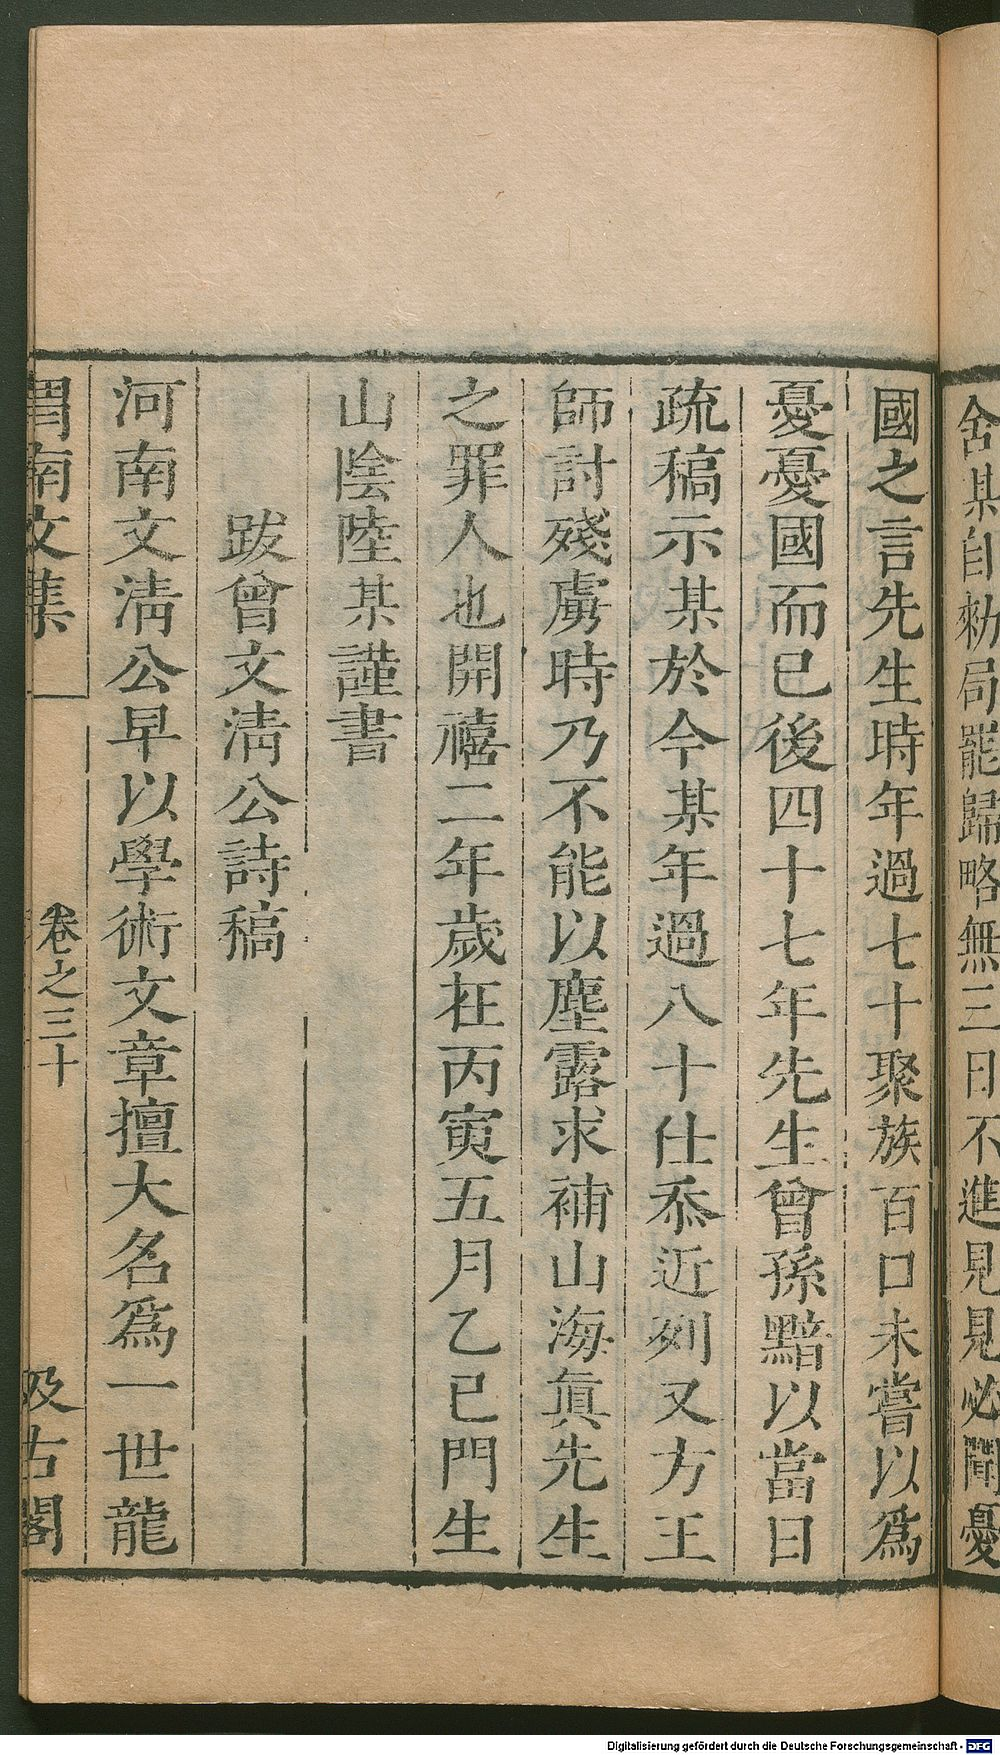 舍某自勑局罷歸略無三日不進見見必聞憂
國之言先生時年過七十聚族百口未嘗以爲
憂憂國而已後四十七年先生曾孫黯以當日
疏稿示某於今某年過八十仕忝近列又方王
師討殘虜時乃不能以塵露求補山海真先生
之罪人也開禧二年歲在丙寅五月乙巳門生
山陰陸某謹書
跋曾文淸公詩稿
河南文淸公早以學術文章擅大名爲一世龍
渭南文集 卷之三十 汲古閣
Digitalisierung gefördert durch die Deutsche Forschungsgemeinschaft - DFG